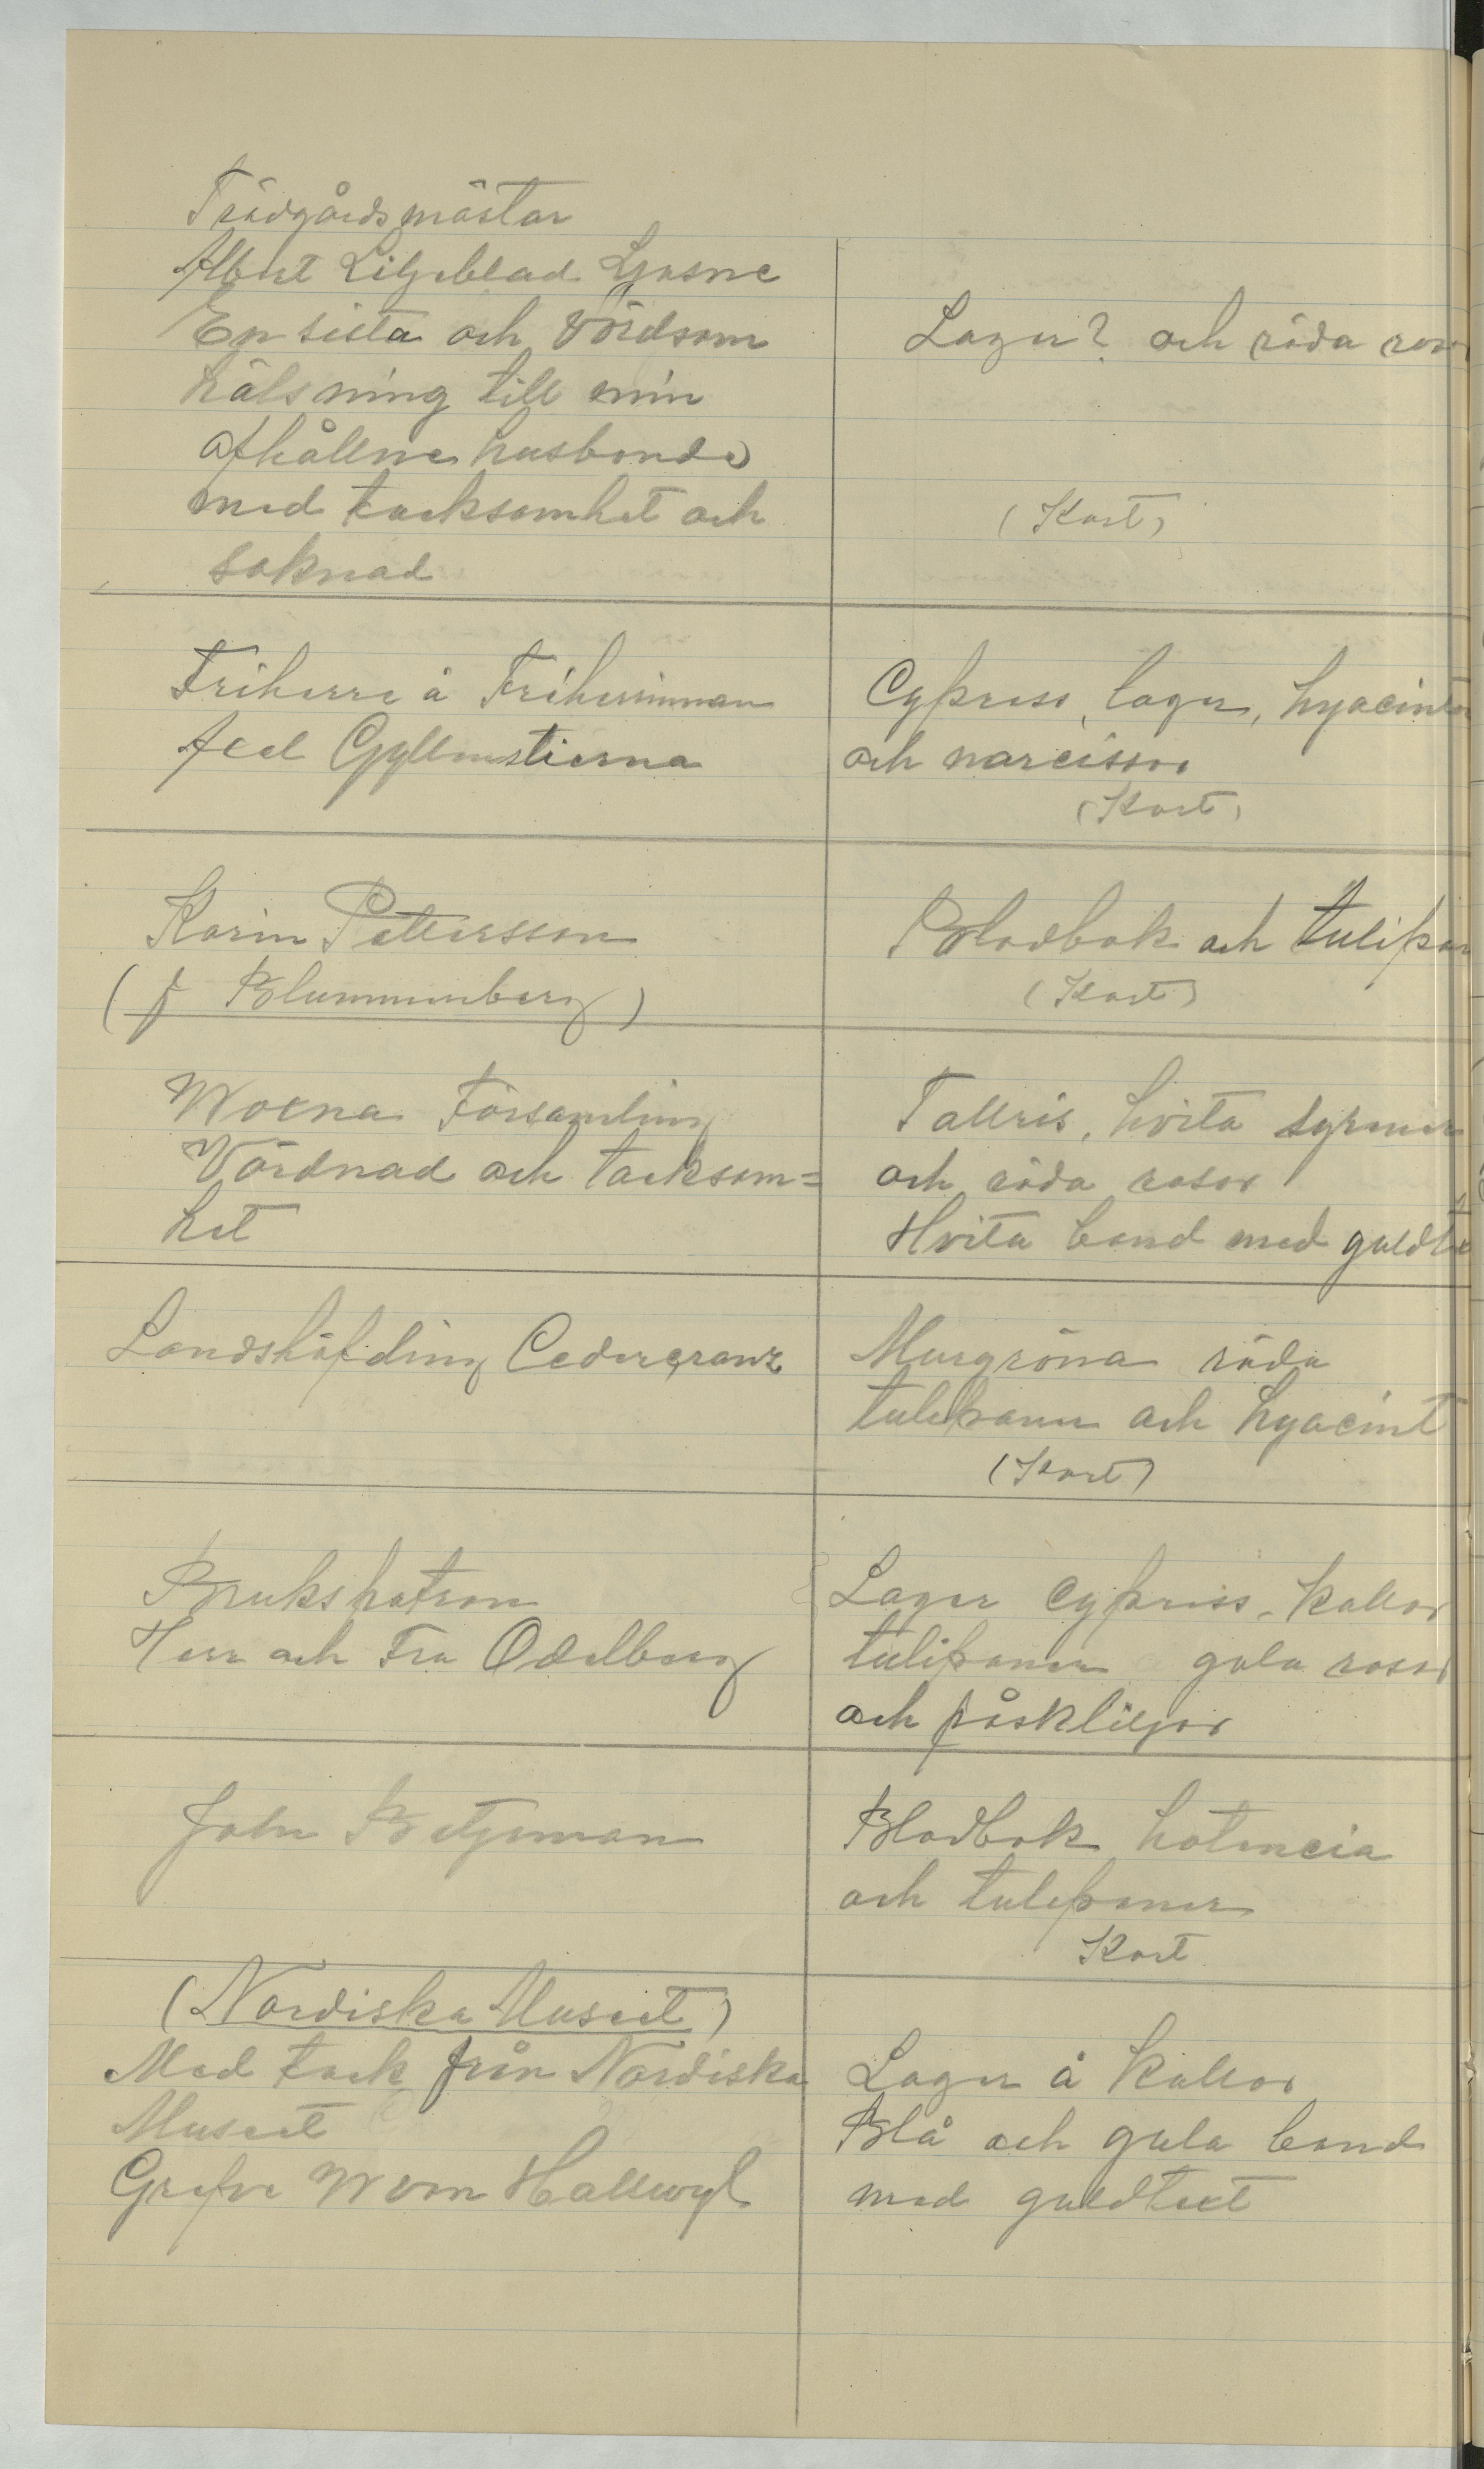 Trädgårdsmästar
Albert Liljeblad Ljusne
En sista och Vördsam
hälsning till min
afhållne husbonde
med tacksamhet och
saknad
Lager? och röda
(Kort)
Friherre å Friherrinnan
Axel Gyllenstierna
Cypress, lager, hyacint
och narcisser
(Kort)
Karin Pettersson
(f Blummenberg)
Blodbok och tulipan
(Kort)
Woxna Församling
Vördnad och tacksam=
het
Tallris, hvita syrener
och röda rosor
Hvita band med guldte
Landshöfding Cedercranz
Murgröna röda
tulipaner och hyacint
(Kort)
Brukspatron
Herr och Fru Odelberg
Lager Cypress, kallor
tulipaner gula rosor
och påskliljor
John Betjeman
Blodbok hotencia
och tulipaner
Kort
(Nordiska Museet)
Med tack från Nordiska
Museet
Grefve W von Hallwyl
Lager å kallor
Blå och gula band
med guldtext